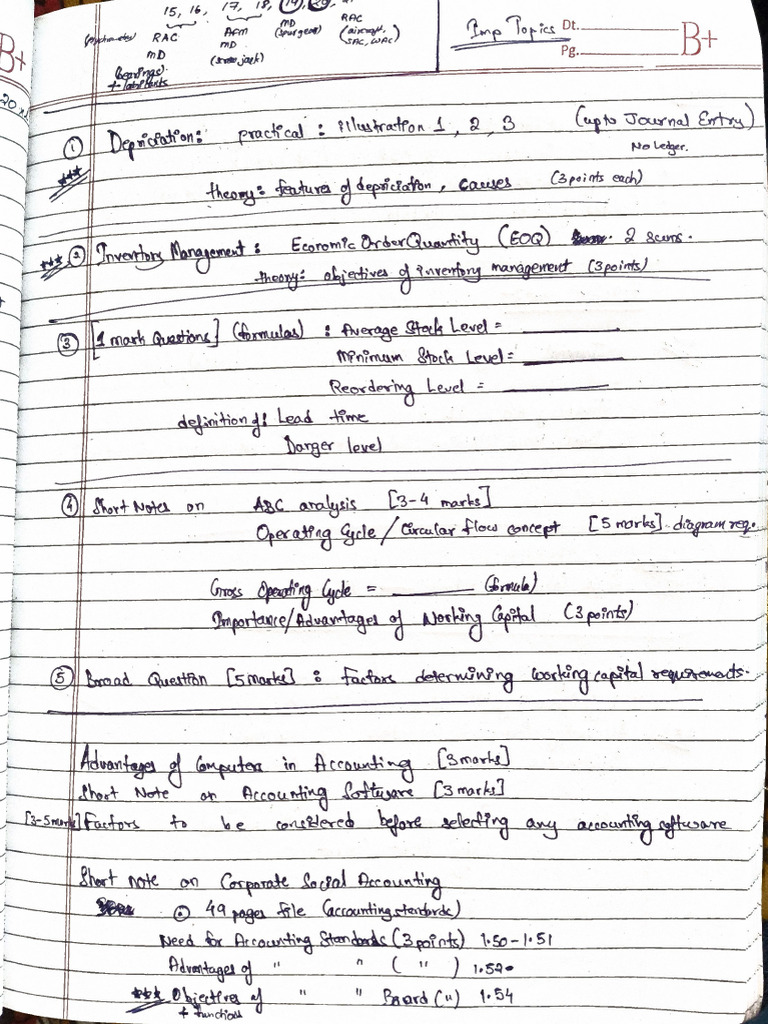 15, 16, 17, 18, 19, 20, 21
RAC AFM MD RAC
MD MD (spurgear) (aircraft,
bearings (screw jack) SAC, WAC)
+ lubricants
Imp Topics Dt.
Pg.
B+
B+
① Depriciation: practical : illustration 1, 2, 3 (upto Journal Entry)
No Ledger.
*** theory: features of depriciation, causes (3 points each)
*** ② Inventory Management: Economic Order Quantity (EOQ) 2 sums.
theory: objectives of inventory management (3 points)
③ [1 mark Questions] (formulas) : Average Stock Level = ________
Minimum Stock Level = ________
Reordering Level = ________
definition of: Lead time
Danger level
④ Short Notes on ABC analysis [3-4 marks]
Operating Cycle / Circular flow concept [5 marks]. diagram req.
Gross Operating Cycle = ________ (formula)
Importance/Advantages of Working Capital (3 points)
⑤ Broad Question [5 marks] : Factors determining working capital requirements.
Advantages of Computers in Accounting [3 marks]
Short Note on Accounting Software [3 marks]
[3-5 mark] Factors to be considered before selecting any accounting software
Short note on Corporate Social Accounting
49 pages file (accounting standards)
Need for Accounting Standards (3 points) 1.50-1.51
Advantages of " " ( " ) 1.52
*** Objectives of " " Board ( " ) 1.54
+ functions